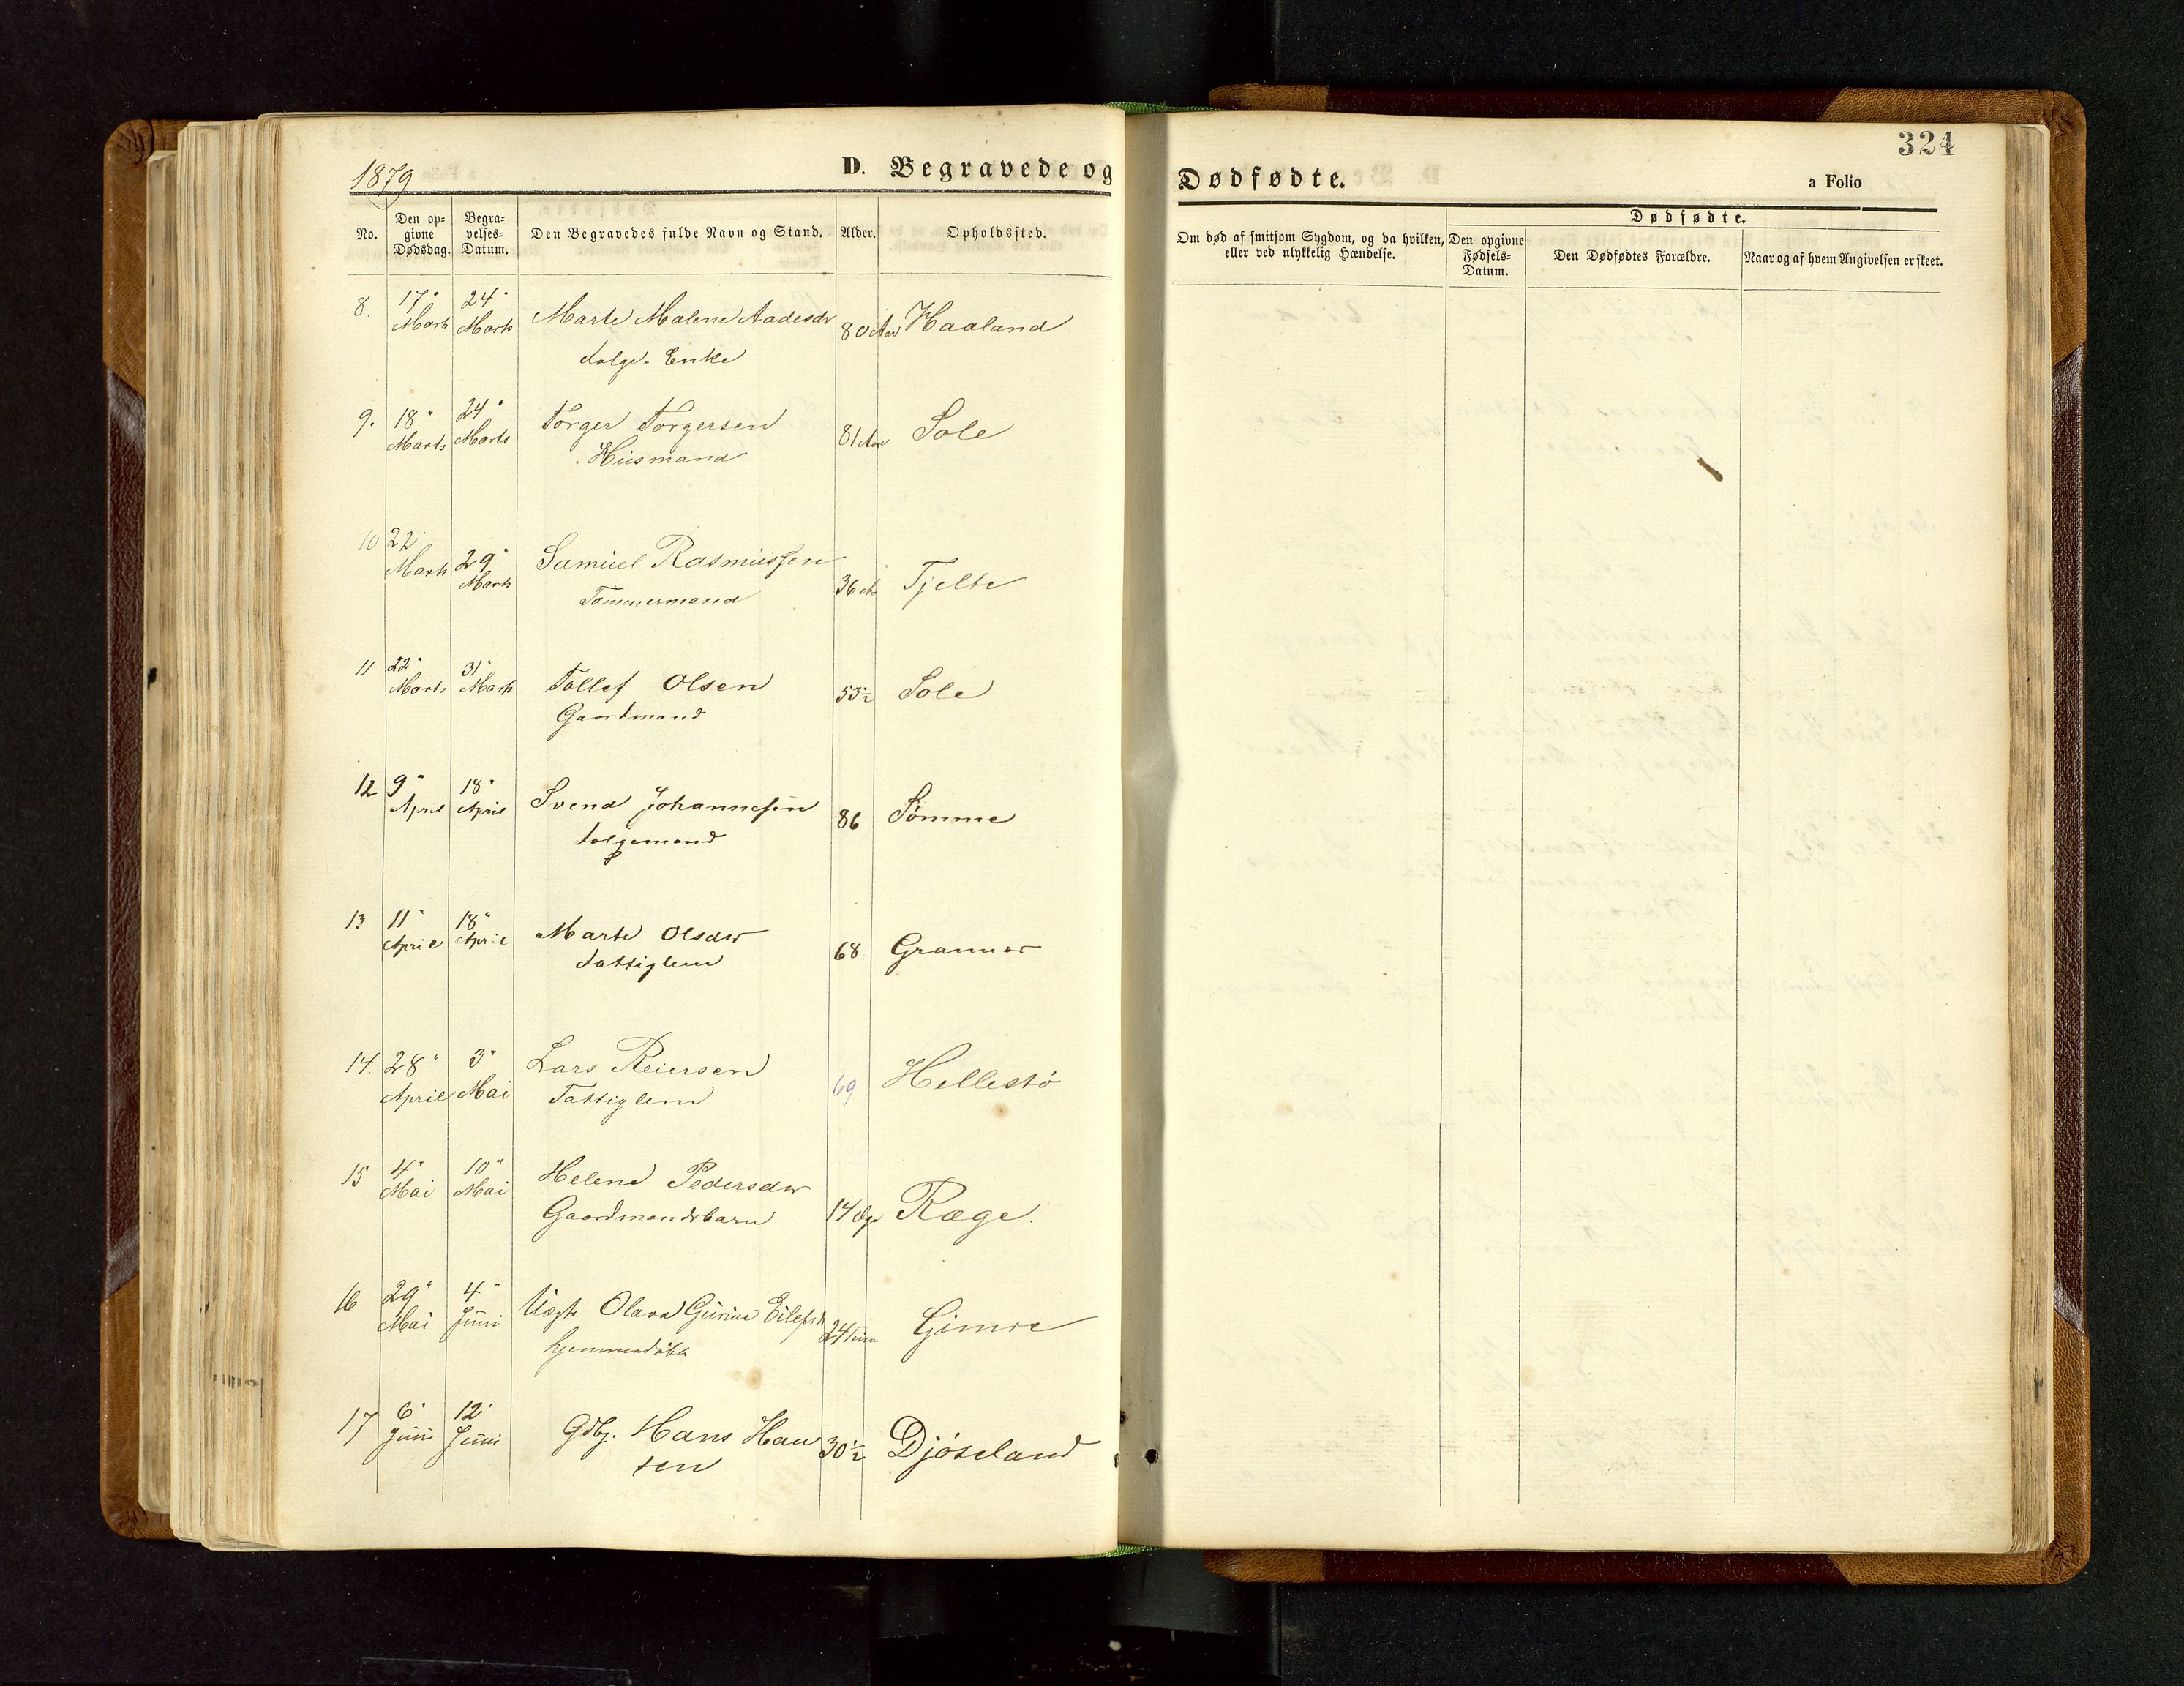 324
1879
D. Begravede og Dødfødte.
a Folio
No.
Den op-
givne
Dødsdag.
Begra-
velses-
Datum.
Den Begravedes fulde Navn og Stand.
Alder.
Opholdssted.
Om død af smitsom Sygdom, og da hvilken,
eller ved ulykkelig Hændelse.
Dødfødte.
Den opgivne
Fødsels-
Datum.
Den Dødfødtes Forældre.
Naar og af hvem Angivelsen er skeet.
8. 17" Marts 24" Marts Marte Malene Aadesdr 80 Aar Haaland
Folge. Enke
9. 18" Marts 24" Marts Torger Torgersen 81 Aar Sole
Husmand
10 22" Marts 29" Marts Samuel Rasmussen 36 Tjelte
Tømmermand
11 22" Marts 31" Marts Tollef Olsen 53½ Sole
Gaardmand
12 9" April 18" April Svend Johannesen 86 Sømme
Folgemand
13 11" April 18" April Marte Olsdr 68 Grannes
Fattiglem
14. 28" April 3" Mai Lars Reiersen 69 Hellestø
Fattiglem
15 4" Mai 10" Mai Helene Pedersdr 14 Dge Ræge.
Gaardmandsbarn
16 29" Mai 4" Juni Uægte Olava Gurine Eilefsdr 24 Timer Gimre
hjemmedøbt
17 6" Juni 12" Juni Gdbg. Hans Han 30½ Djøseland
sen